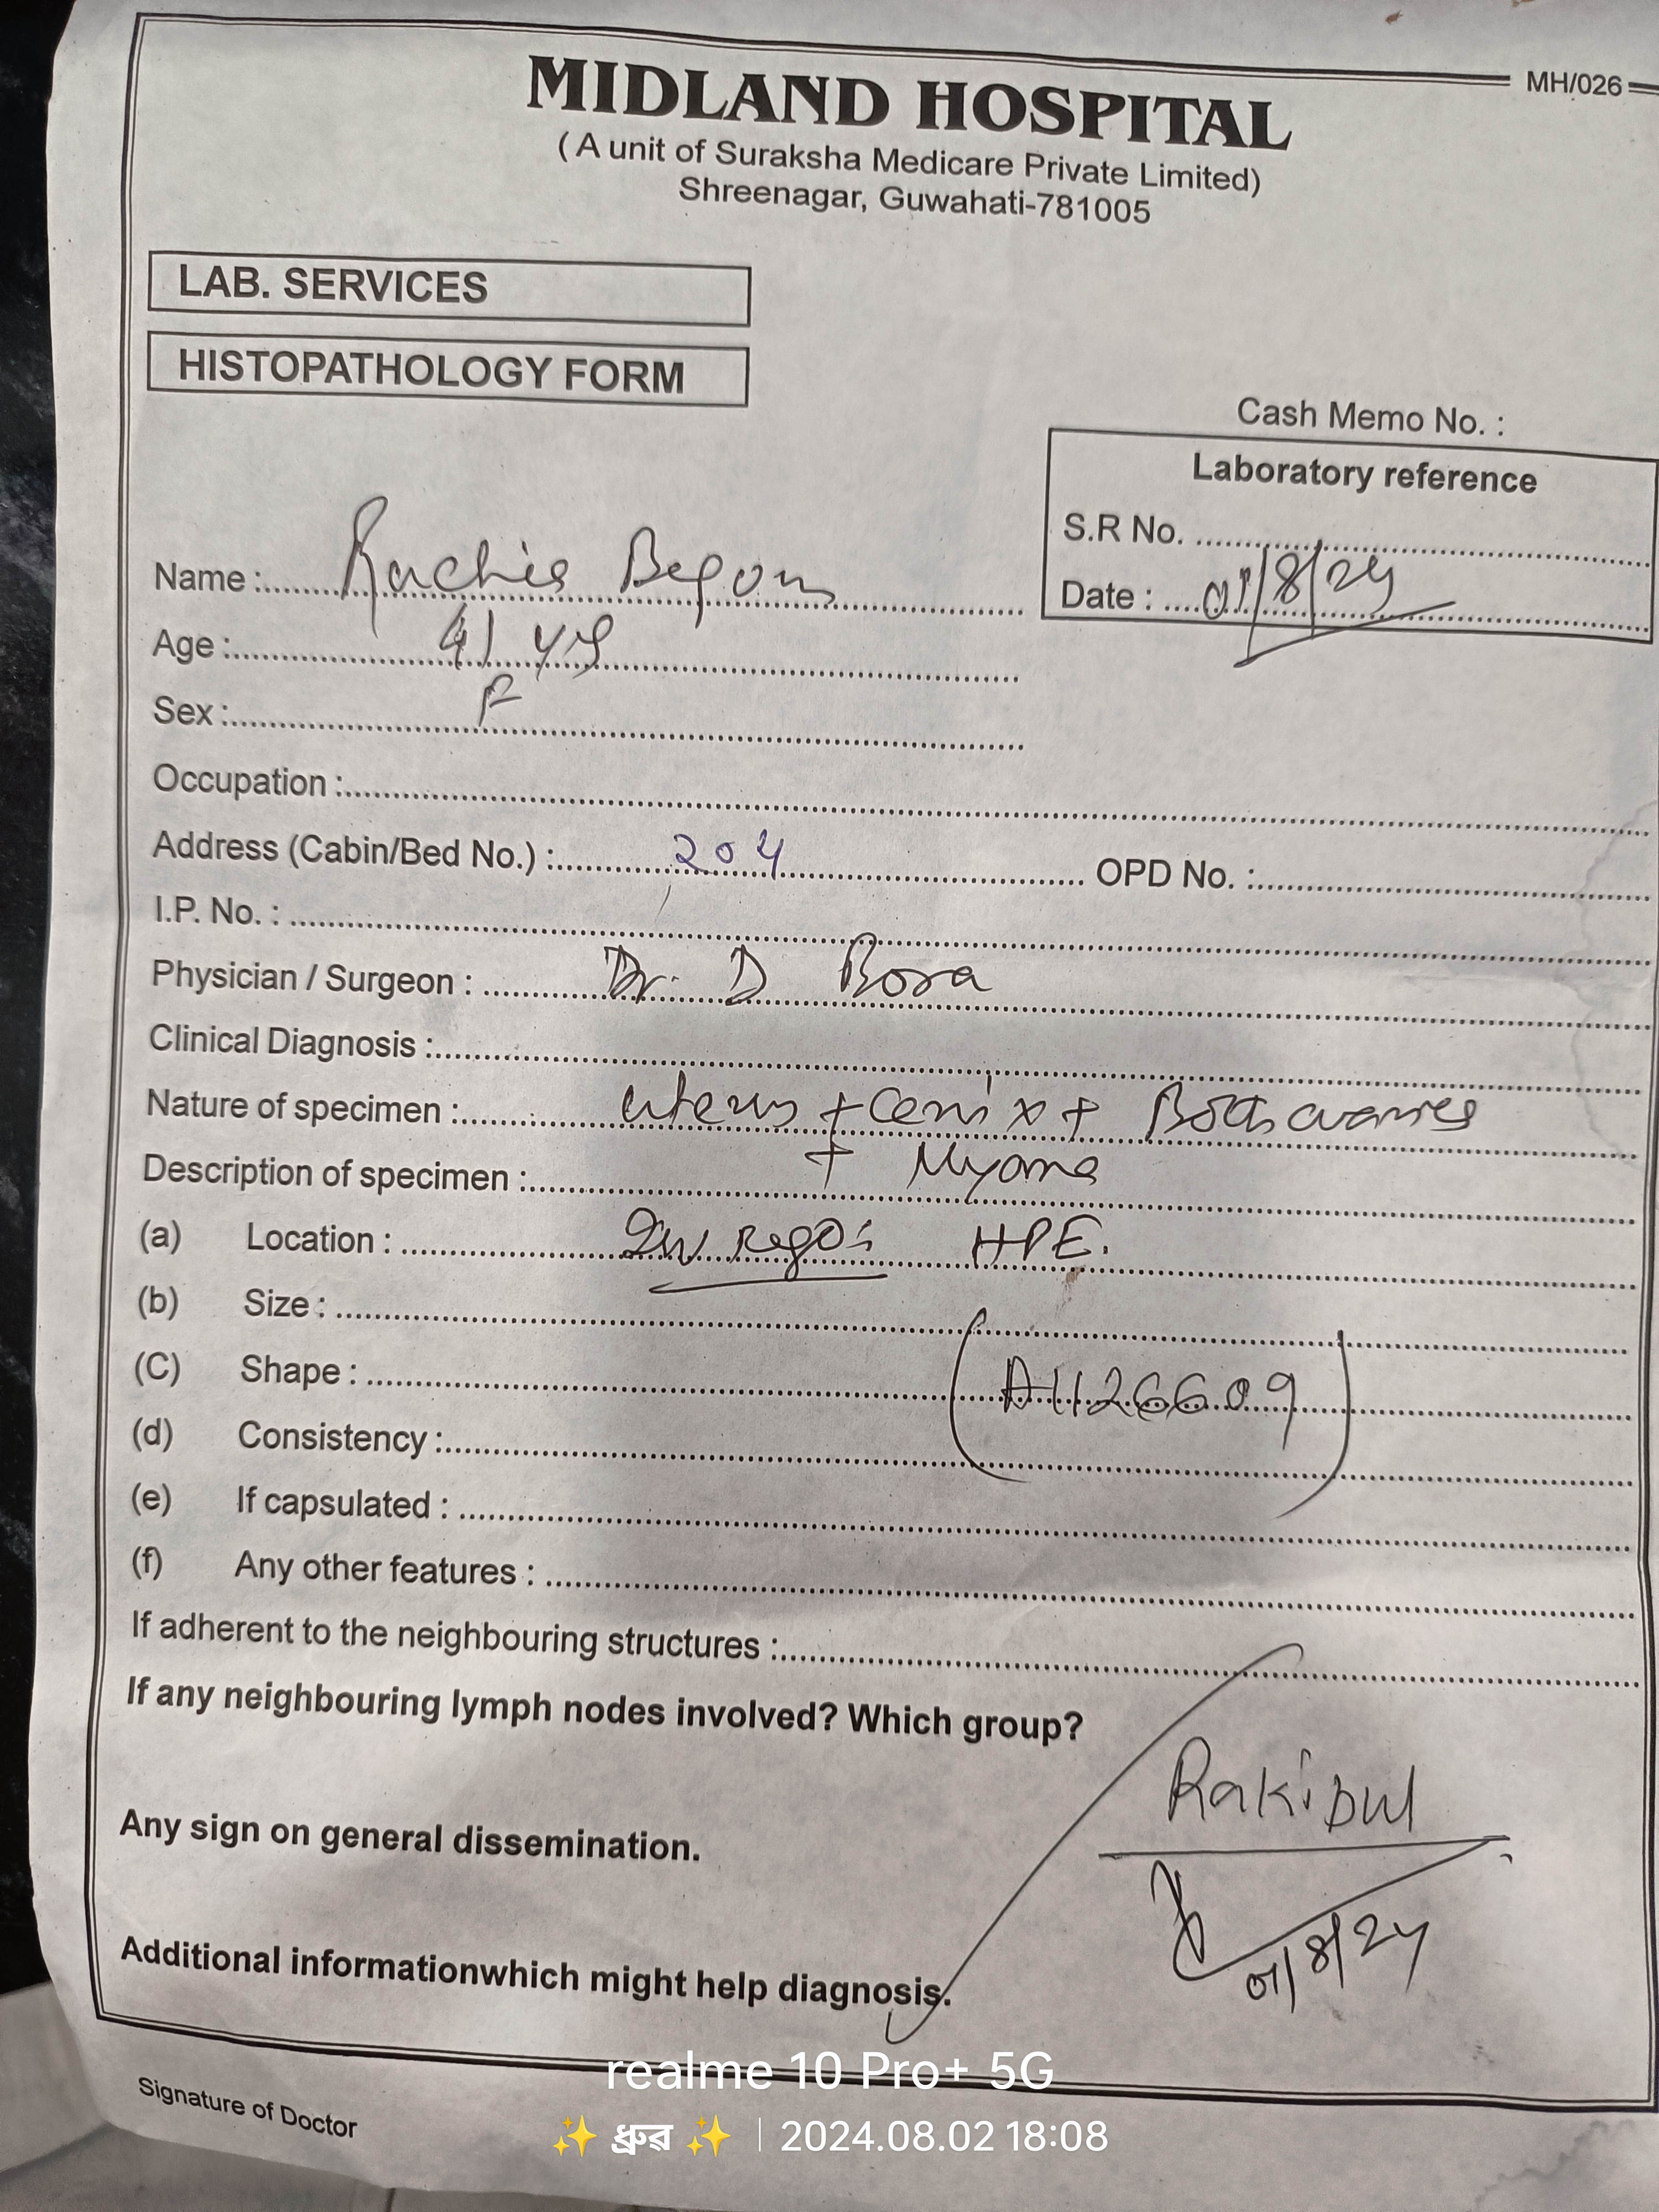 MH/026
MIDLAND HOSPITAL
( A unit of Suraksha Medicare Private Limited)
Shreenagar, Guwahati-781005
LAB. SERVICES
HISTOPATHOLOGY FORM
Cash Memo No. :
Laboratory reference
S.R No.
Date : 01/8/24
Name : Begom
Age : 41 yrs
Sex : F
Occupation :
Address (Cabin/Bed No.) : 204 OPD No. :
I.P. No. :
Physician / Surgeon : Dr. D Bora
Clinical Diagnosis :
Nature of specimen : uterus + Cervix + Both ovaries
+ Myoma
Description of specimen :
(a) Location : HPE.
(b) Size :
(C) Shape : (A1126609)
(d) Consistency :
(e) If capsulated :
(f) Any other features :
If adherent to the neighbouring structures :
If any neighbouring lymph nodes involved? Which group?
Rakibul
Any sign on general dissemination.
01/8/24
Additional informationwhich might help diagnosis.
Signature of Doctor
realme 10 Pro+ 5G
✨ ধ্ৰুৱ ✨ | 2024.08.02 18:08